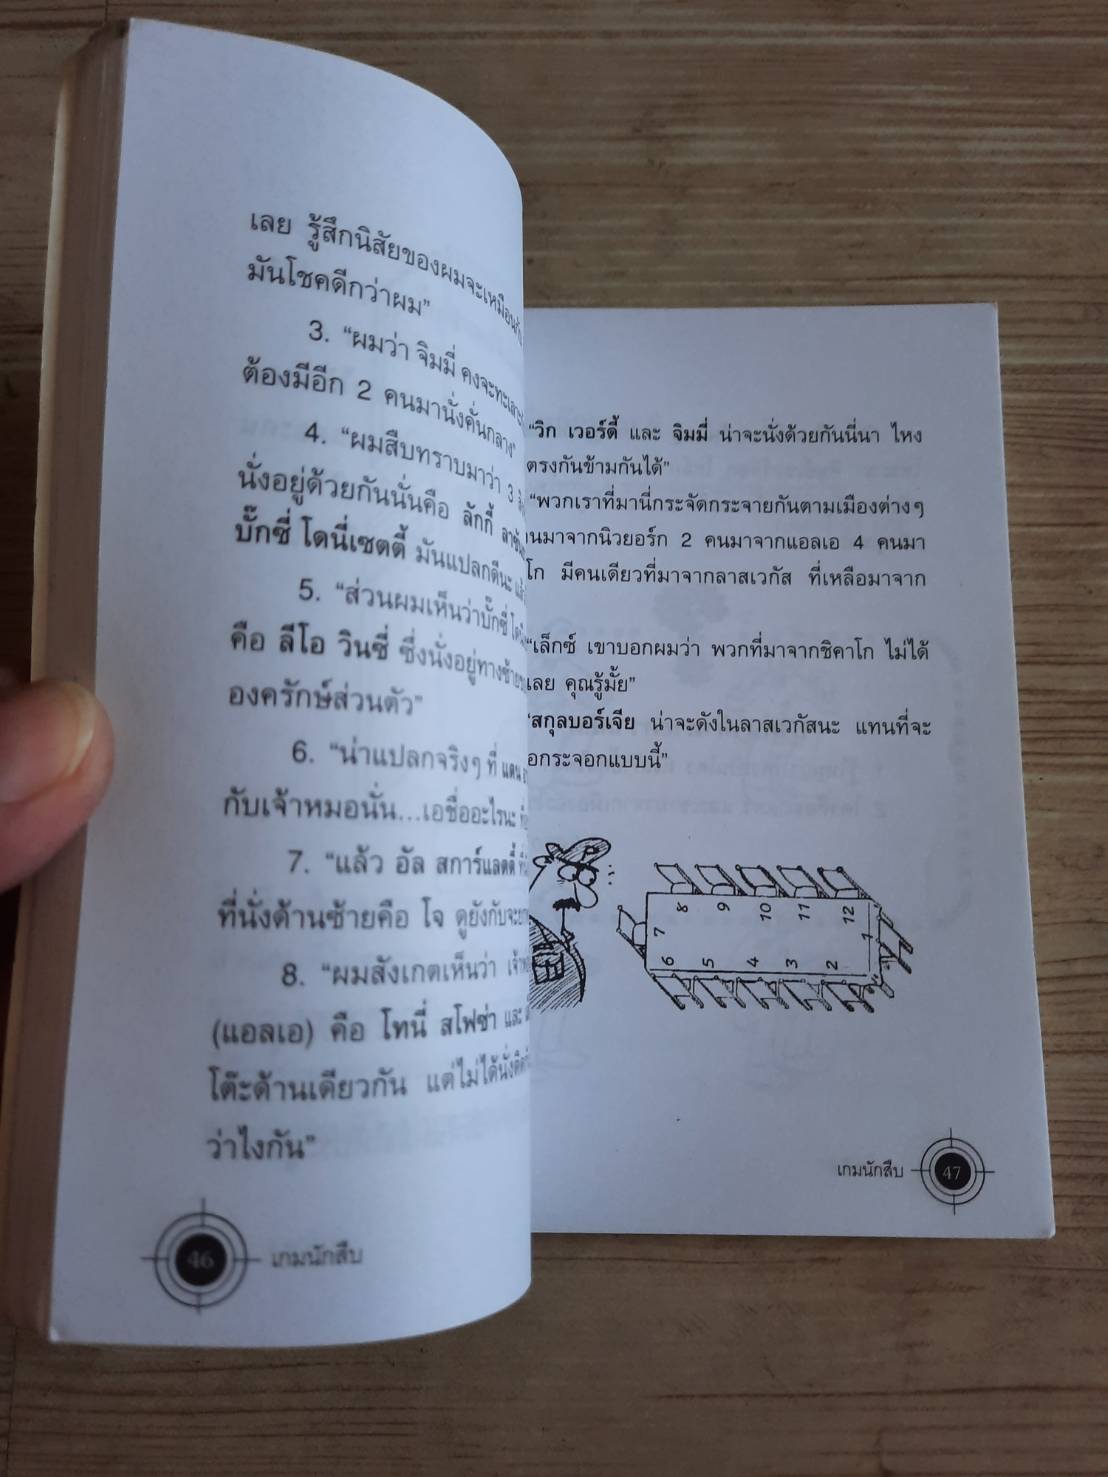 เลย รู้สึกนิสัยของผมจะเหมือนกับ
มันโชคดีกว่าผม”
3. “ผมว่า จิมมี่ คงจะทะเลาะ
ต้องมีอีก 2 คนมานั่งคั่นกลาง”
4. “ผมสืบทราบมาว่า 3
นั่งอยู่ด้วยกันนั่นคือ ลักกี้
บั๊กซี่ โดนี่เซตตี้ มันแปลกดีนะ
5. “ส่วนผมเห็นว่าบั๊กซี่
คือ ลีโอ วินซี่ ซึ่งนั่งอยู่ทางซ้าย
องครักษ์ส่วนตัว”
6. “น่าแปลกจริงๆ ที่ แดน
กับเจ้าหมอนั่น...เอชื่ออะไรนะ
7. “แล้ว อัล สการ์แลตตี้
ที่นั่งด้านซ้ายคือ โจ ดูยังกับจะ
8. “ผมสังเกตเห็นว่า
(แอลเอ) คือ โทนี่ สโฟซ่า และ
โต๊ะด้านเดียวกัน แต่ไม่ได้นั่งติด
ว่าไงกัน”
46 เกมนักสืบ
“วิก เวอร์ดี้ และ จิมมี่ น่าจะนั่งด้วยกันนี่นา ไหง
ตรงกันข้ามกันได้”
“พวกเราที่มานี่กระจัดกระจายกันตามเมืองต่างๆ
นมาจากนิวยอร์ก 2 คนมาจากแอลเอ 4 คนมา
โก มีคนเดียวที่มาจากลาสเวกัส ที่เหลือมาจาก
“เล็กซ์ เขาบอกผมว่า พวกที่มาจากชิคาโก ไม่ได้
เลย คุณรู้มั้ย”
‘สกุลบอร์เจีย น่าจะดังในลาสเวกัสนะ แทนที่จะ
อกระจอกแบบนี้”
8 9 10 11 12
7 1
6 5 4 3 2
เกมนักสืบ 47